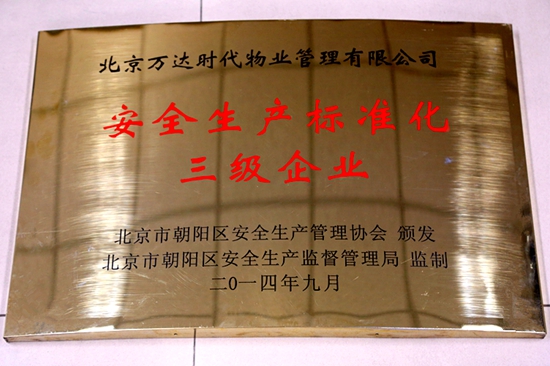 北京万达时代物业管理有限公司
安全生产标准化
三级企业
北京市朝阳区安全生产管理协会 颁发
北京市朝阳区安全生产监督管理局 监制
二0一四年九月